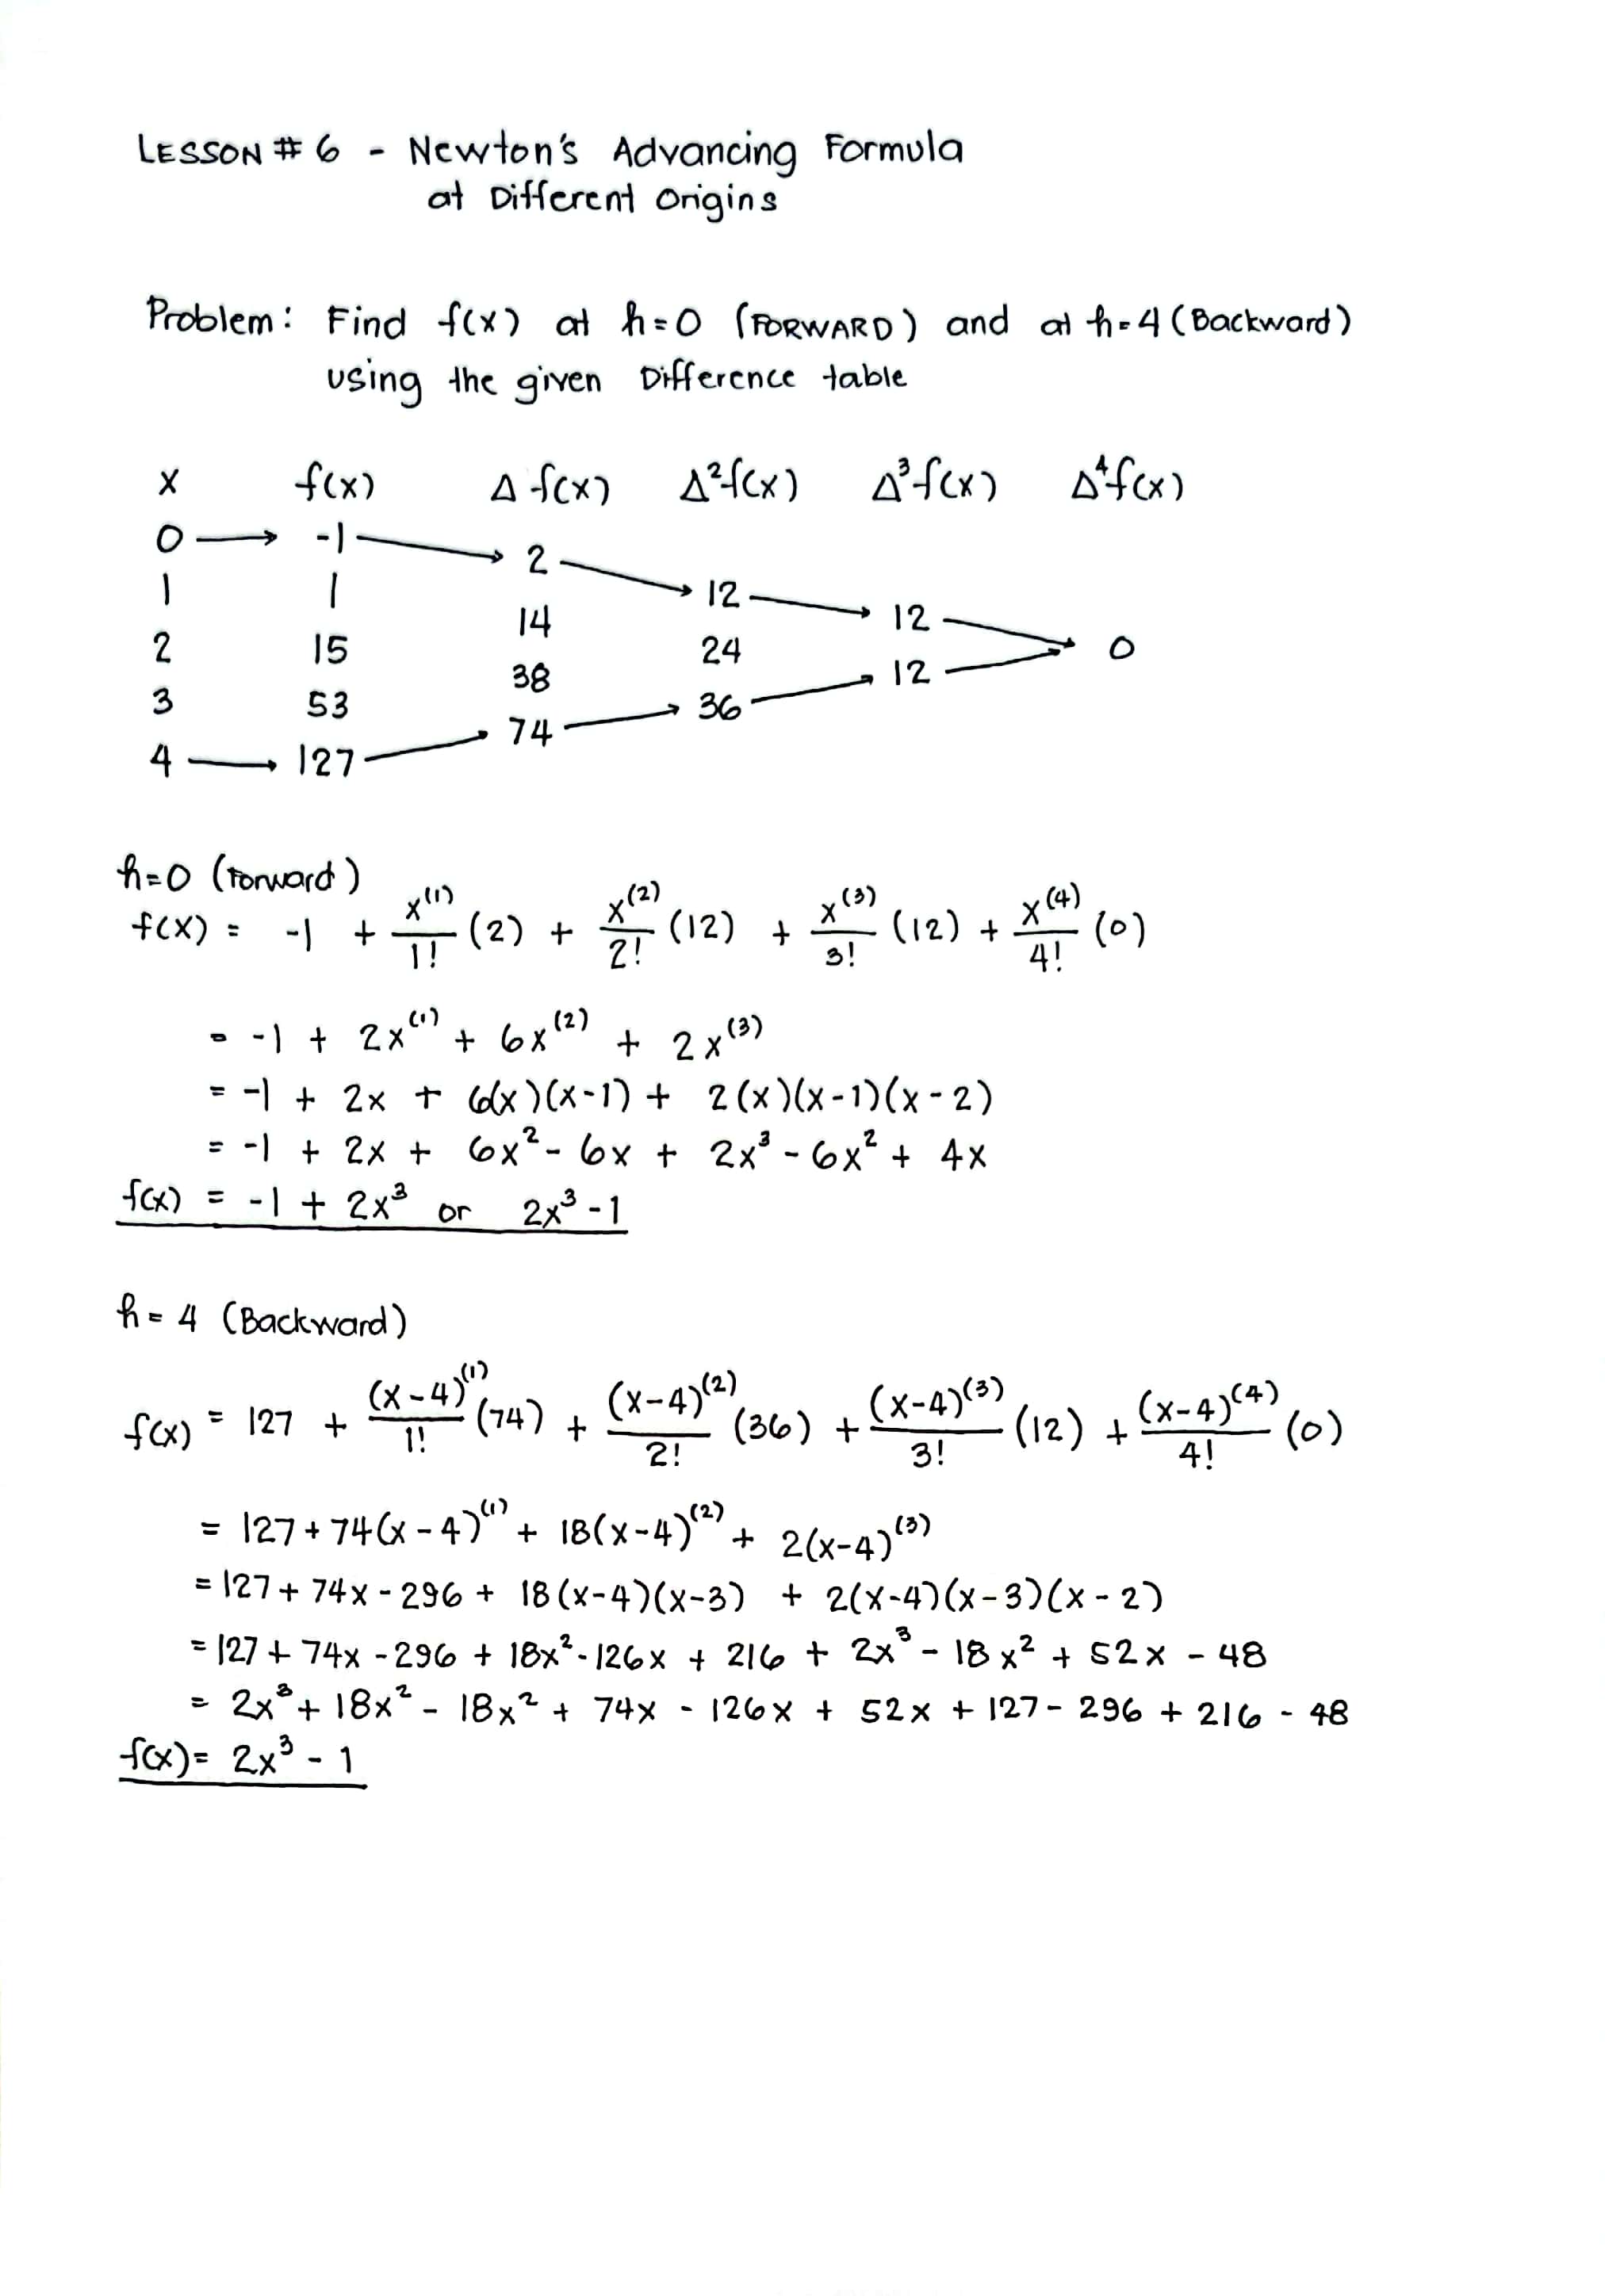 LESSON # 6 - Newton's Advancing Formula
at Different Origins
Problem: Find f(x) at h=0 (FORWARD) and at h=4 (Backward)
using the given Difference table
x f(x) Δ f(x) Δ²f(x) Δ³f(x) Δ⁴f(x)
0 → -1 → 2 → 12 → 12 → 0
1 1 14 24 12
2 15 38 36
3 53 74
4 → 127
h=0 (Forward)
f(x) = -1 + x⁽¹⁾/1! (2) + x⁽²⁾/2! (12) + x⁽³⁾/3! (12) + x⁽⁴⁾/4! (0)
= -1 + 2x⁽¹⁾ + 6x⁽²⁾ + 2x⁽³⁾
= -1 + 2x + 6(x)(x-1) + 2(x)(x-1)(x-2)
= -1 + 2x + 6x² - 6x + 2x³ - 6x² + 4x
f(x) = -1 + 2x³ or 2x³ - 1
h = 4 (Backward)
f(x) = 127 + (x-4)⁽¹⁾/1! (74) + (x-4)⁽²⁾/2! (36) + (x-4)⁽³⁾/3! (12) + (x-4)⁽⁴⁾/4! (0)
= 127 + 74(x-4)⁽¹⁾ + 18(x-4)⁽²⁾ + 2(x-4)⁽³⁾
= 127 + 74x - 296 + 18(x-4)(x-3) + 2(x-4)(x-3)(x-2)
= 127 + 74x - 296 + 18x² - 126x + 216 + 2x³ - 18x² + 52x - 48
= 2x³ + 18x² - 18x² + 74x - 126x + 52x + 127 - 296 + 216 - 48
f(x) = 2x³ - 1